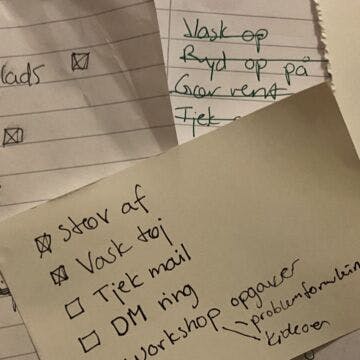 lads
Vask op
Ryd op på
Gør rent
Tjek
Støv af
Vask tøj
Tjek mail
DM ring
Workshop opgaver
problemformulering